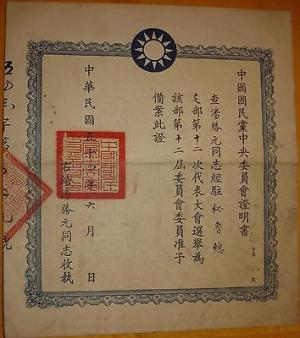 中國國民黨中央委員會證明書
查潘勝元同志經駐秘魯總
支部第十二次代表大會選舉為
該部第十二屆委員會委員准予
備案此證
中華民國五十四年六月 日
右給潘勝元同志收執